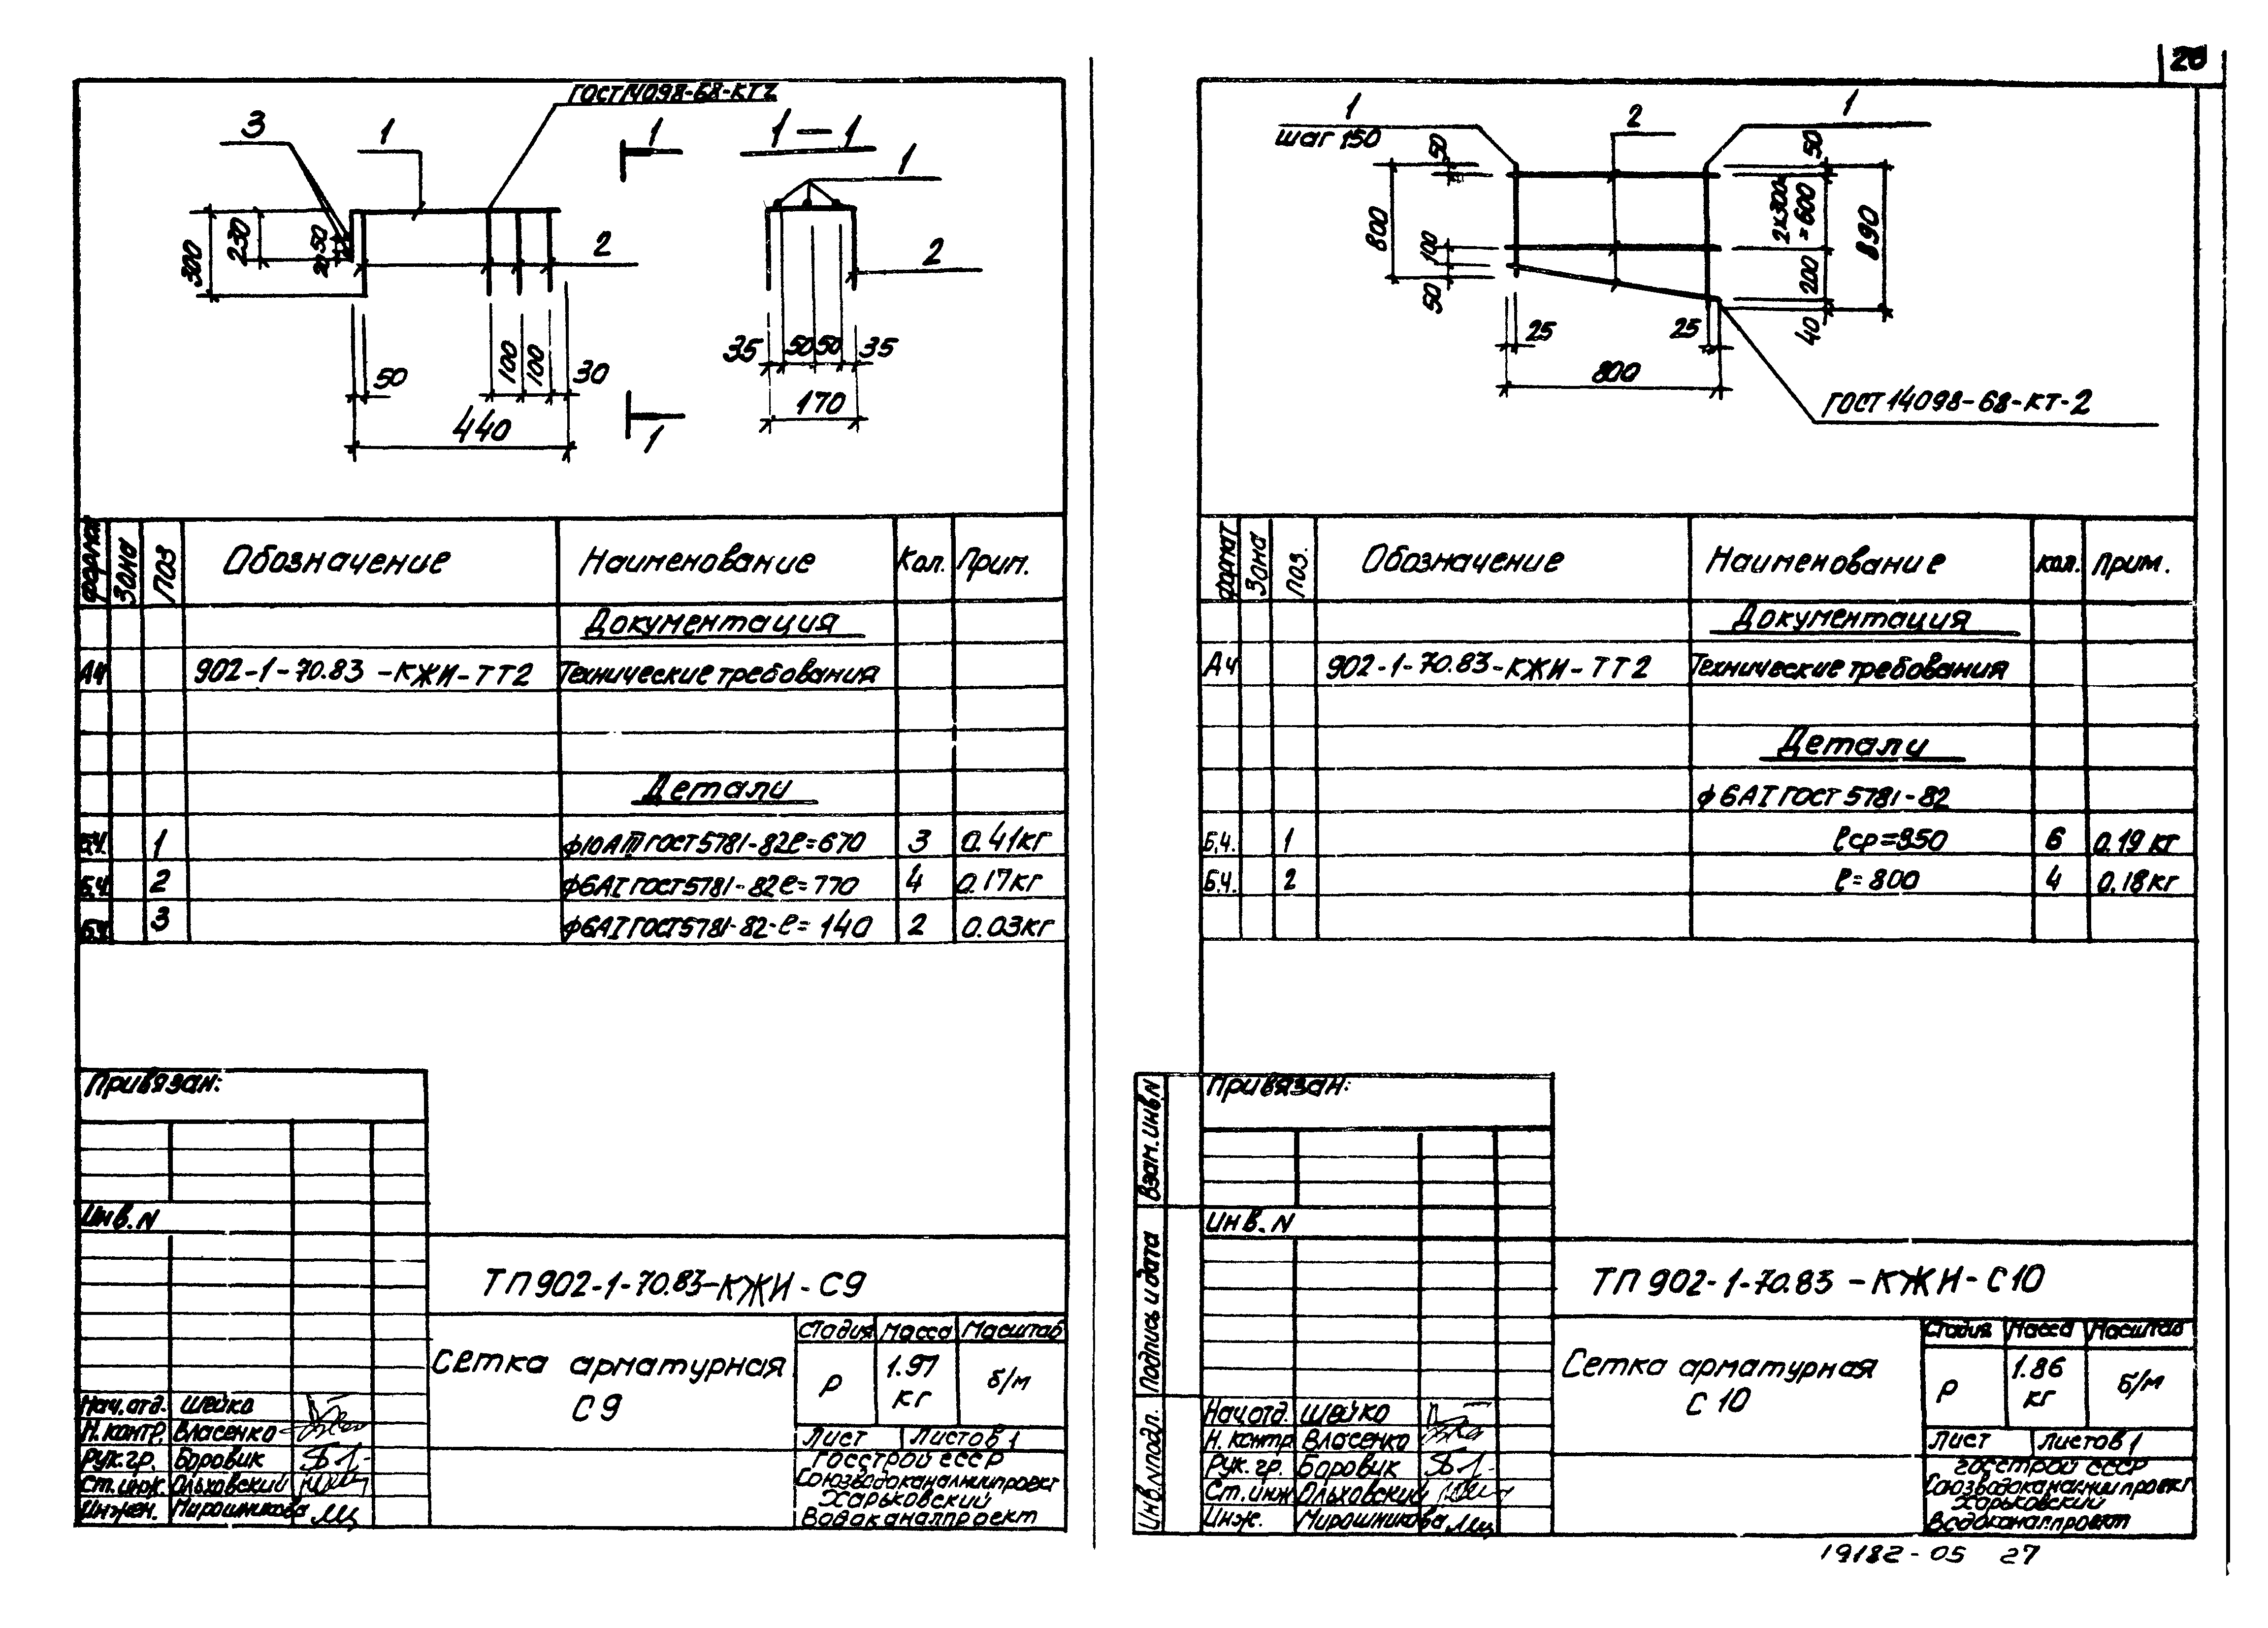 26
ГОСТ14098-68-КТ2
3
1
1
1-1
1
300
230
50
20
2
2
50
100
100
30
440
1
35
50
50
35
170
формат
Зона
Поз
Обозначение
Наименование
Кол.
Прим.
Документация
А4
902-1-70.83-КЖИ-ТТ2
Технические требования
Детали
Б.Ч.
1
ф10АIII ГОСТ5781-82 ℓ=670
3
0.41кг
Б.Ч.
2
ф6АI ГОСТ5781-82 ℓ=770
4
0.17кг
Б.Ч.
3
ф6АI ГОСТ5781-82-ℓ=140
2
0.03кг
Привязан:
Инв.N
ТП902-1-70.83-КЖИ-С9
Сетка арматурная
С9
Стадия
Масса
Масштаб
Р
1.97
кг
б/м
Лист
Листов 1
Нач.отд. Шейко
Н.контр. Власенко
Рук.гр. Боровик
Ст.инж. Ольховский
Инжен. Мирошникова
Госстрой СССР
Союзводоканалниипроект
Харьковский
Водоканалпроект
1
шаг 150
2
1
50
800
100
50
50
2х300=
=600
200
40
890
25
25
800
ГОСТ14098-68-КТ-2
формат
Зона
Поз.
Обозначение
Наименование
Кол.
Прим.
Документация
А4
902-1-70.83-КЖИ-ТТ2
Технические требования
Детали
ф6АI ГОСТ 5781-82
Б.Ч.
1
ℓср=850
6
0.19 кг
Б.Ч.
2
ℓ=800
4
0.18кг
Взам.инв.N
Подпись и дата
Инв.Nподл.
Привязан:
Инв.N
ТП902-1-70.83-КЖИ-С10
Сетка арматурная
С10
Стадия
Масса
Масштаб
Р
1.86
кг
б/м
Лист
Листов 1
Нач.отд. Шейко
Н.контр Власенко
Рук.гр. Боровик
Ст.инж Ольховский
Инж. Мирошникова
Госстрой СССР
Союзводоканалниипроект
Харьковский
Водоканалпроект
19182-05 27